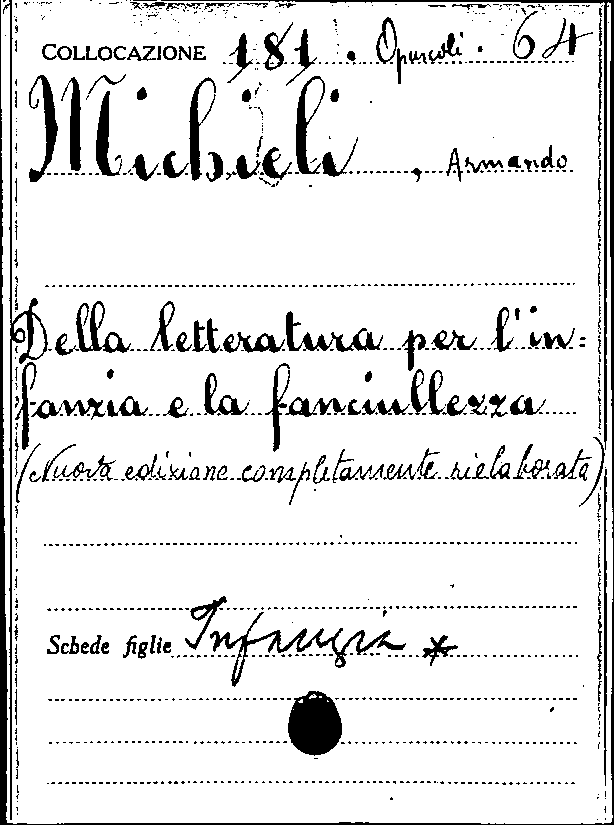 COLLOCAZIONE 181. Opuscoli. 64
Michieli, Armando
Della letteratura per l'in=
fanzia e la fanciullezza
(Nuova edizione completamente rielaborata)
Schede figlie Infanzia *